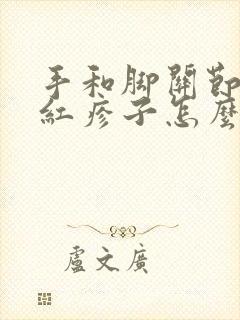 手和脚關節
紅疹子怎麼
盧文廣